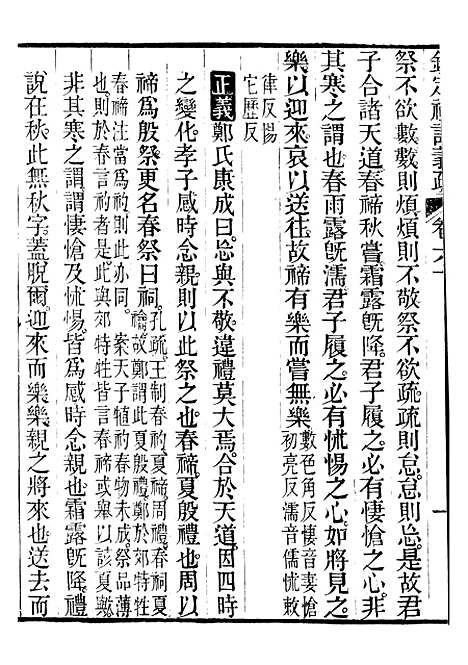 欽定禮記義疏 卷六一
祭不欲數數則煩煩則不敬祭不欲疏疏則怠怠則忘是故君
子合諸天道春禘秋嘗霜露旣降君子履之必有悽愴之心非
其寒之謂也春雨露旣濡君子履之必有怵惕之心如將見之
樂以迎來哀以送往故禘有樂而嘗無樂 數色角反悽音妻愴
初亮反濡音儒怵敕
律反惕
它歷反
正義鄭氏康成曰忘與不敬違禮莫大焉合於天道因四時
之變化孝子感時念親則以此祭之也春禘夏殷禮也周以
禘爲殷祭更名春祭曰祠 孔疏王制春礿夏禘周禮春祠夏
禴故鄭謂此夏殷禮鄭於郊特牲
春禘注當爲礿則此亦同 案天子犆礿春物未成祭品薄
也則於春言礿者是此與郊特牲皆言春禘或舉以該夏與
非其寒之謂謂悽愴及怵惕皆爲感時念親也霜露旣降禮
說在秋此無秋字蓋脫爾迎來而樂樂親之將來也送去而